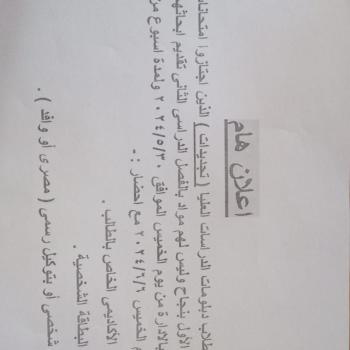 اعلان هام
طلاب دبلومات الدراسات العليا ( تجديدات ) الذين اجتازوا امتحانات
الأول بنجاح وليس لهم مواد بالفصل الدراسى الثانى تقديم ابحاثهم
بالادارة من يوم الخميس الموافق ٢٠٢٤/٥/٣٠ ولمدة اسبوع من
الخميس ٢٠٢٤/٦/٦ مع إحضار : ـ
الأكاديمى الخاص بالطالب .
البطاقة الشخصية .
شخصى أو بتوكيل رسمى ( مصرى أو وافد ) .